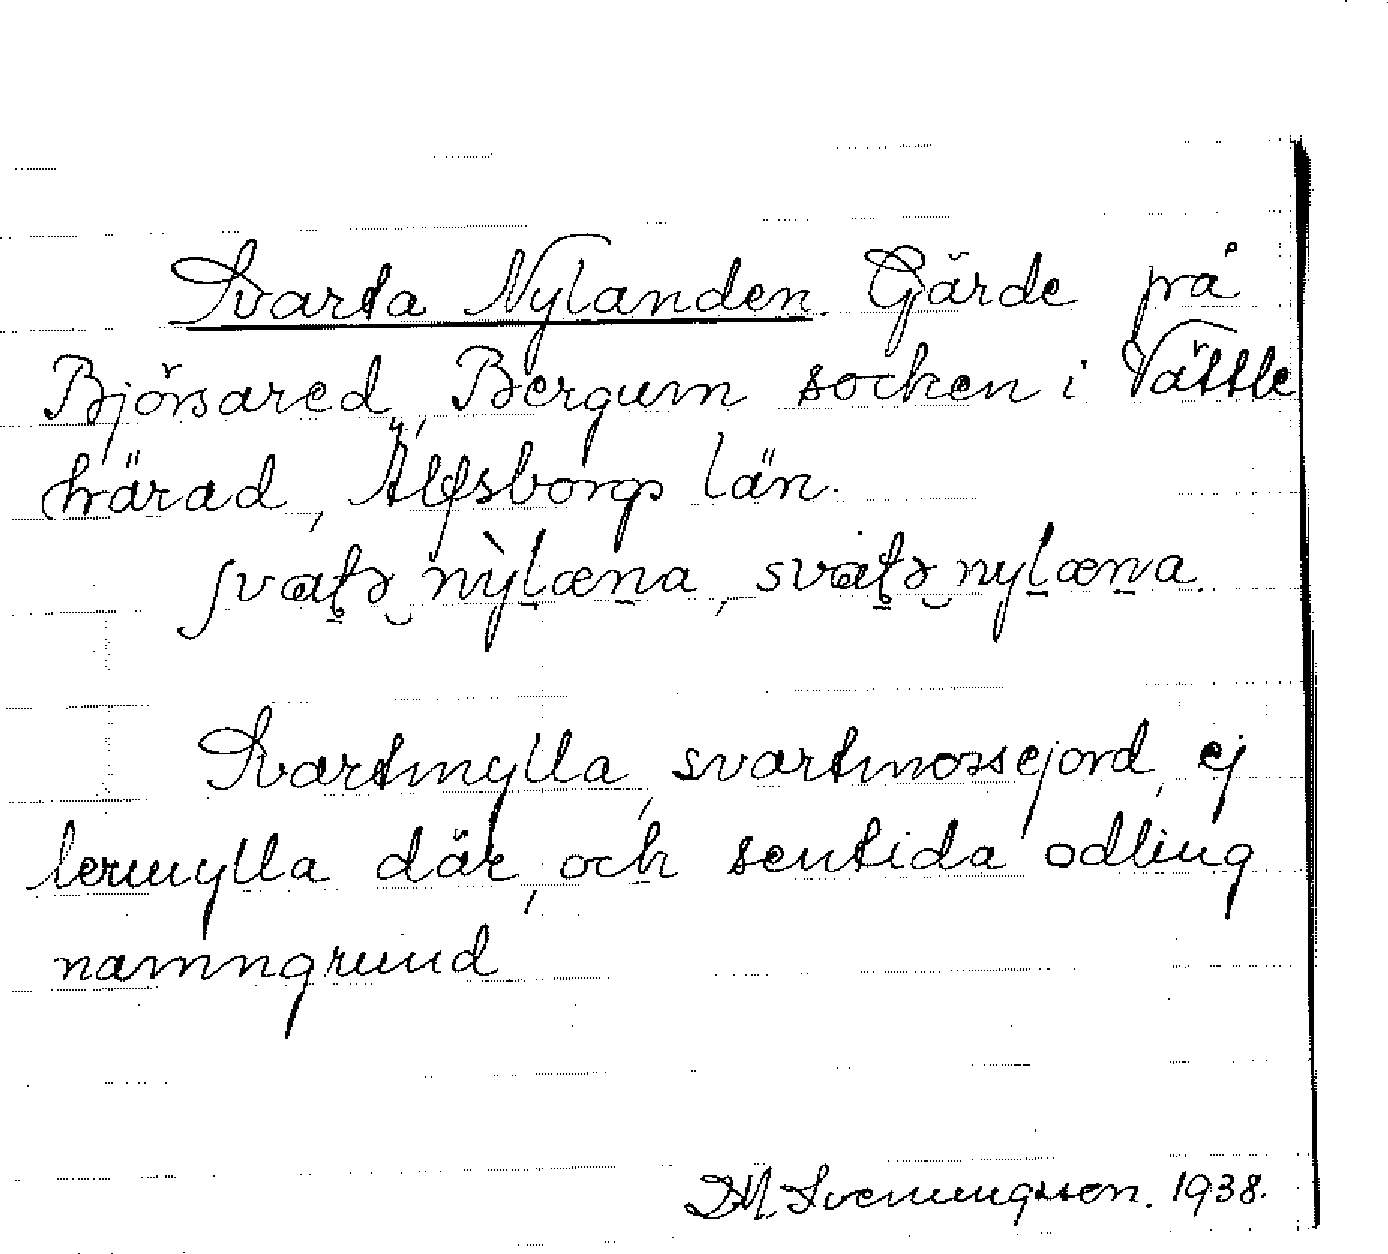 Svarta Nylanden. Gärde på
Björsared, Bergum socken i Vättle
härad, Älfsborgs län.
svaʈə‿nỳḷæṉa, svaʈə‿nyḷæṉa.
Svartmylla, svartmossejord, ej
lermylla där, och sentida odling
namngrund
DM Svenungsson. 1938.